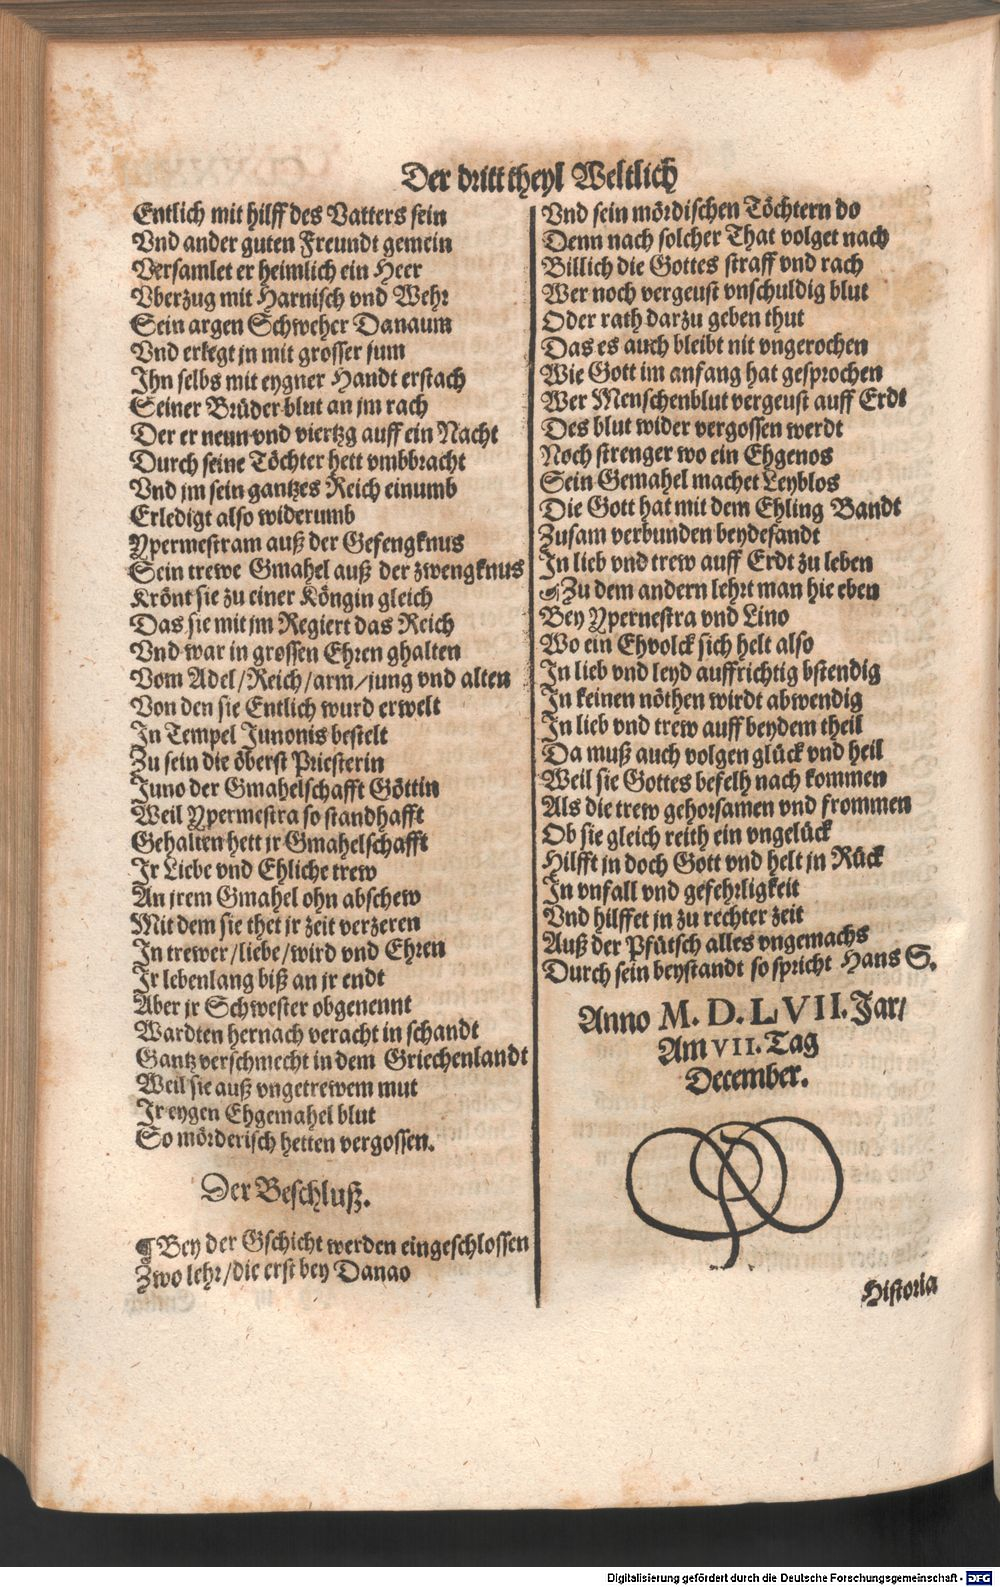 Der dritt theyl Weltlich
Entlich mit hilff des Vatters sein
Vnd ander guten Freundt gemein
Versamlet er heimlich ein Heer
Vberzug mit Harnisch vnd Wehr
Sein argen Schweher Danaum
Vnd erlegt jn mit grosser sum
Ihn selbs mit eygner Handt erstach
Seiner Brüder blut an jm rach
Der er neun vnd viertzg auff ein Nacht
Durch seine Töchter hett vmbbracht
Vnd jm sein gantzes Reich einumb
Erledigt also widerumb
Ypermestram auß der Gefengknus
Sein trewe Gmahel auß der zwengknus
Krönt sie zu einer Köngin gleich
Das sie mit jm Regiert das Reich
Vnd war in grossen Ehren ghalten
Vom Adel/Reich/arm/jung vnd alten
Von den sie Entlich wurd erwelt
In Tempel Junonis bestelt
Zu sein die öberst Priesterin
Juno der Gmahelschafft Göttin
Weil Ypermestra so standhafft
Gehalten hett jr Gmahelschafft
Jr Liebe vnd Ehliche trew
An jrem Gmahel ohn abschew
Mit dem sie thet jr zeit verzeren
In trewer/liebe/wird vnd Ehren
Jr lebenlang biß an jr endt
Aber jr Schwester obgenennt
Wardten hernach veracht in schandt
Gantz verschmecht in dem Griechenlandt
Weil sie auß vngetrewem mut
Jr eygen Ehgemahel blut
So mörderisch hetten vergossen.
Der Beschluß.
¶ Bey der Gschicht werden eingeschlossen
Zwo lehr/die erst bey Danao
Vnd sein mördischen Töchtern do
Denn nach solcher That volget nach
Billich die Gottes straff vnd rach
Wer noch vergeust vnschuldig blut
Oder rath darzu geben thut
Das es auch bleibt nit vngerochen
Wie Gott im anfang hat gesprochen
Wer Menschenblut vergeust auff Erdt
Des blut wider vergossen werdt
Noch strenger wo ein Ehgenos
Sein Gemahel machet Leyblos
Die Gott hat mit dem Ehling Bandt
Zusam verbunden beydesandt
In lieb vnd trew auff Erdt zu leben
¶ Zu dem andern lehrt man hie eben
Bey Ypernestra vnd Lino
Wo ein Ehvolck sich helt also
In lieb vnd leyd auffrichtig bstendig
In keinen nöthen wirdt abwendig
In lieb vnd trew auff beydem theil
Da muß auch volgen glück vnd heil
Weil sie Gottes befelh nach kommen
Als die trew gehorsamen vnd frommen
Ob sie gleich reith ein vngelück
Hilfft jn doch Gott vnd helt jn Rück
In vnfall vnd gefehrligkeit
Vnd hilffet jn zu rechter zeit
Auß der Pfütsch alles vngemachs
Durch sein beystandt so spricht Hans S.
Anno M. D. LVII. Jar/
Am VII. Tag
December.
Historia
Digitalisierung gefördert durch die Deutsche Forschungsgemeinschaft - DFG